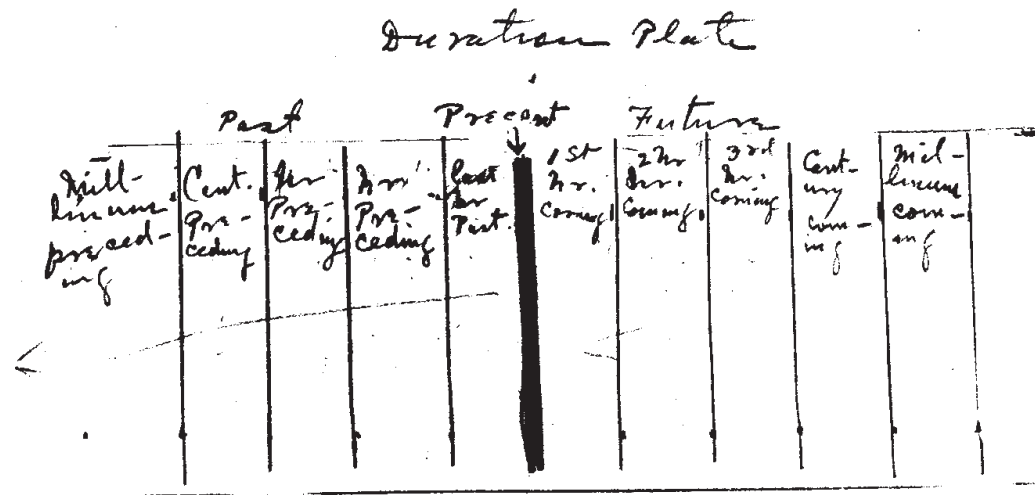 Duration Plate
Past
Present
Future
Mill-
lineum
preced-
ing
Cent.
Pre-
ceding
Hr
Pre-
ceding
Hr
Pre-
ceding
Last
Hr
Past.
1st
Hr.
coming
2nr
Hr.
Coming.
3rd
Hr.
Coming
Cent-
ury
com-
ing
Mil-
lineum
com-
ing